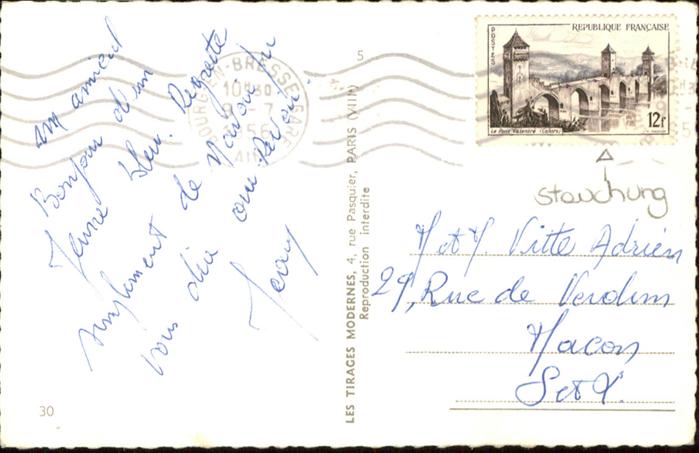 un amical
Bonjour d'un
Jeune
Regrette
simplement de
vous dire au Revoir.
Jeany
30
5
LES TIRAGES MODERNES, 4, rue Pasquier, PARIS (VIIIe)
Reproduction interdite
BOURG-EN-BRESSE GARE
10H30
1956
AIN
POSTES
REPUBLIQUE FRANÇAISE
Le Pont Valentré (Cahors)
12f
Stauchung
M et M. Vitte Adrien
29, Rue de Verdun
Macon
S et L.